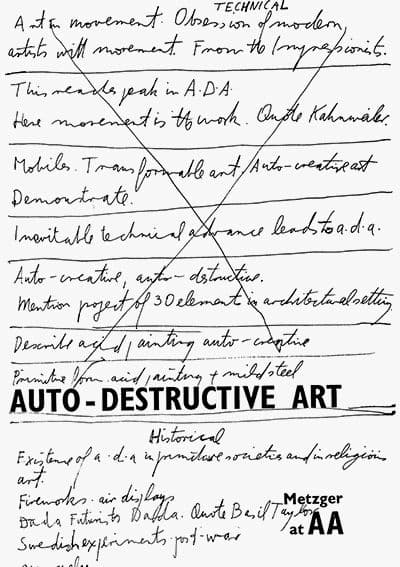 TECHNICAL
Art in movement. Obsession of modern,
artists with movement. From the Impressionists.
This reaches peak in A.D.A.
Here movement is the work. Quote Kahnweiler.
Mobiles. Transformable art/Auto-creative art
Demonstrate.
Inevitable technical advance leads to a.d.a.
Auto-creative, auto-dstructive.
Mention project of 30 element in architectural setting
Describe acid painting auto-creative
Primitive form. acid painting + mild steel
AUTO-DESTRUCTIVE ART
Historical
Existence of a.d.a in primitive societies and in religious
art.
Fireworks. air displays
Dada Futurists Dada. Quote Basil Taylor
Swedish experiments post-war
Metzger
at AA